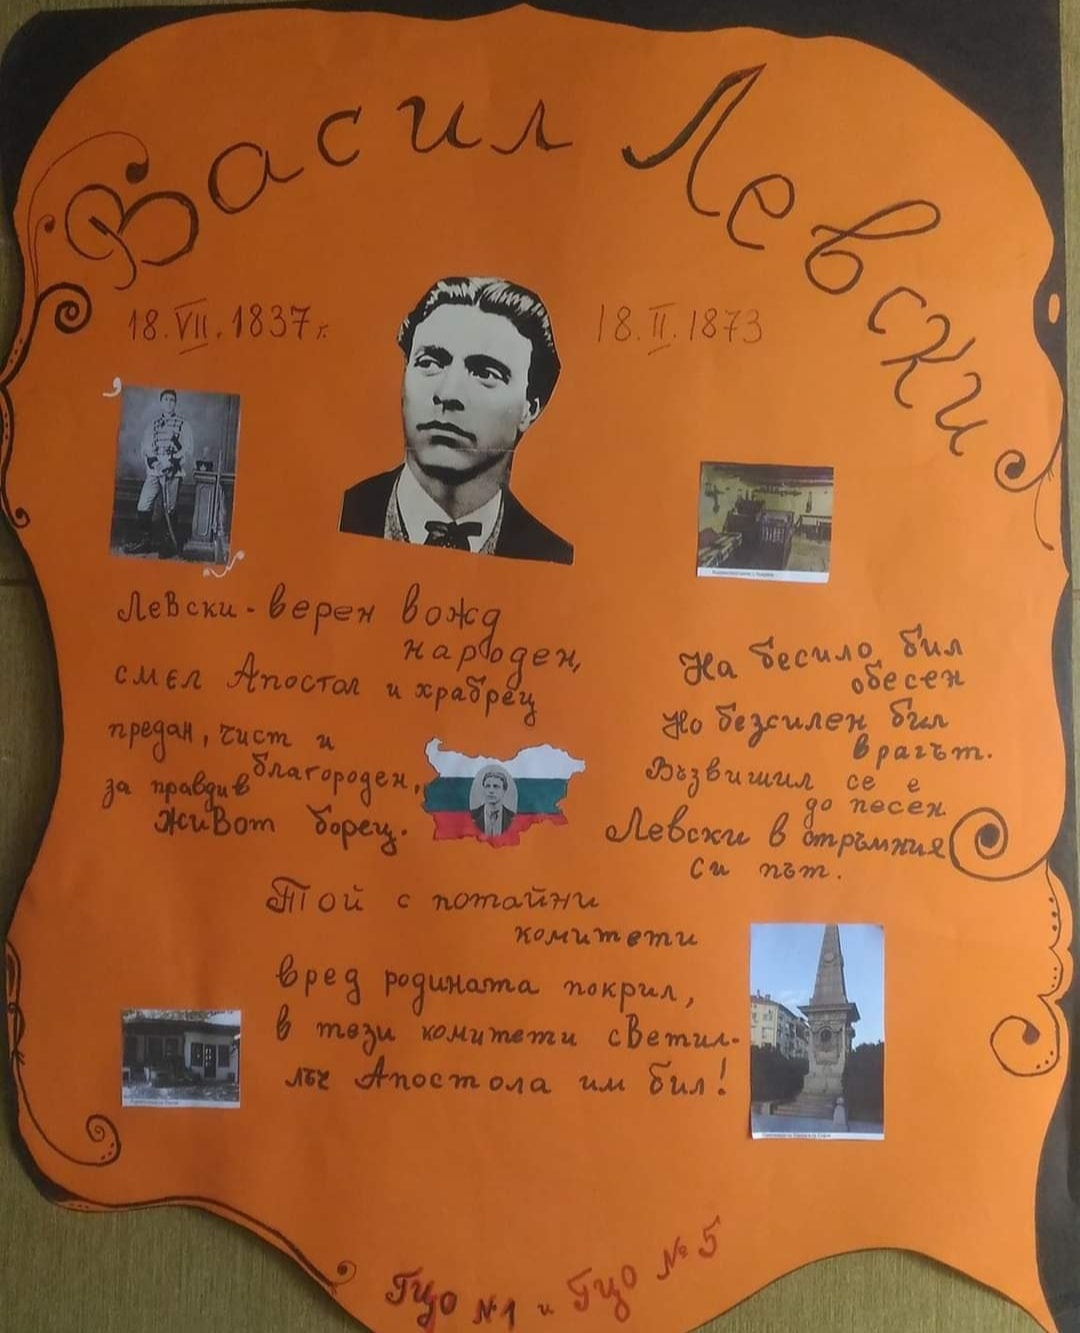 Васил Левски
18.VII.1837г.
18.II.1873
Левски - верен вожд
народен,
смел Апостол и храбрец
предан, чист и
благороден,
за правдив
живот борец.
На бесило бил
обесен
Но безсилен бил
врагът.
Възвишил се е
до песен
Левски в стръмния
си път.
Той с потайни
комитети
вред родината покрил,
в тези комитети светил-
лъч Апостола им бил!
ГЦО №1 и ГЦО №5